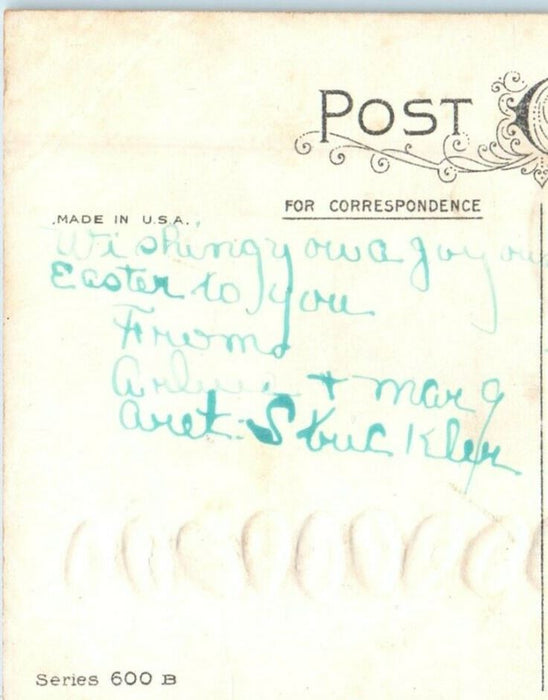 POST
FOR CORRESPONDENCE
MADE IN U.S.A.
Wishing you a
Easter to you
From
+ marg
aret. Stuckler
Series 600 B